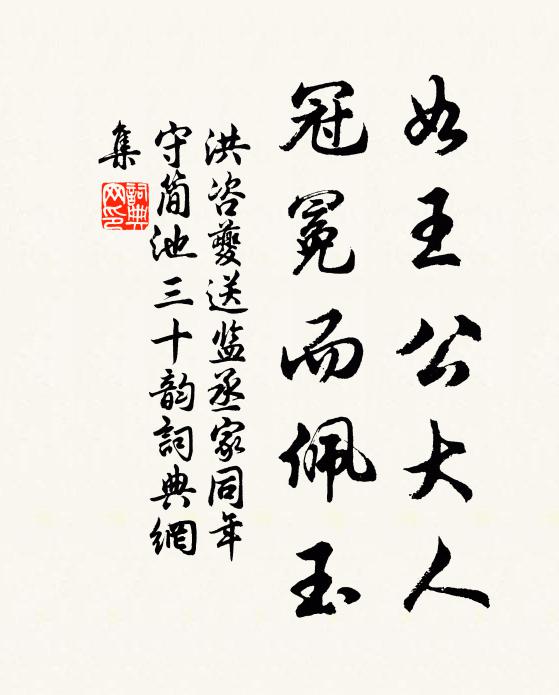 如王公大人
冠冕而佩玉
洪咨夔送监丞家同年
守简池三十韵詞典網
集
詞典
网印